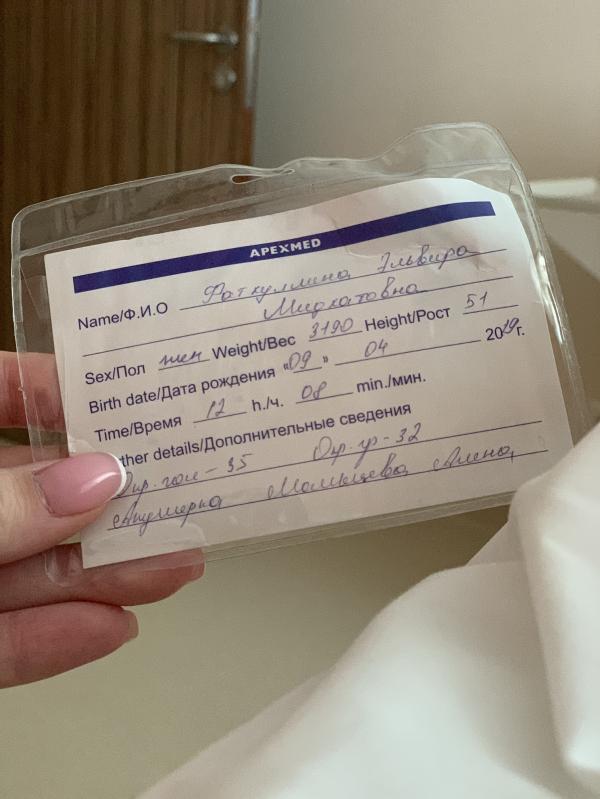 APEXMED
Name/Ф.И.О Фаткуллина Эльвира
Мидхатовна
Sex/Пол жен Weight/Вес 3190 Height/Рост 51
Birth date/Дата рождения «09» 04 2019г.
Time/Время 12 h./ч. 08 min./мин.
ther details/Дополнительные сведения
Окр. гол - 35 Окр. гр - 32
Акушерка Мальцева Алена,